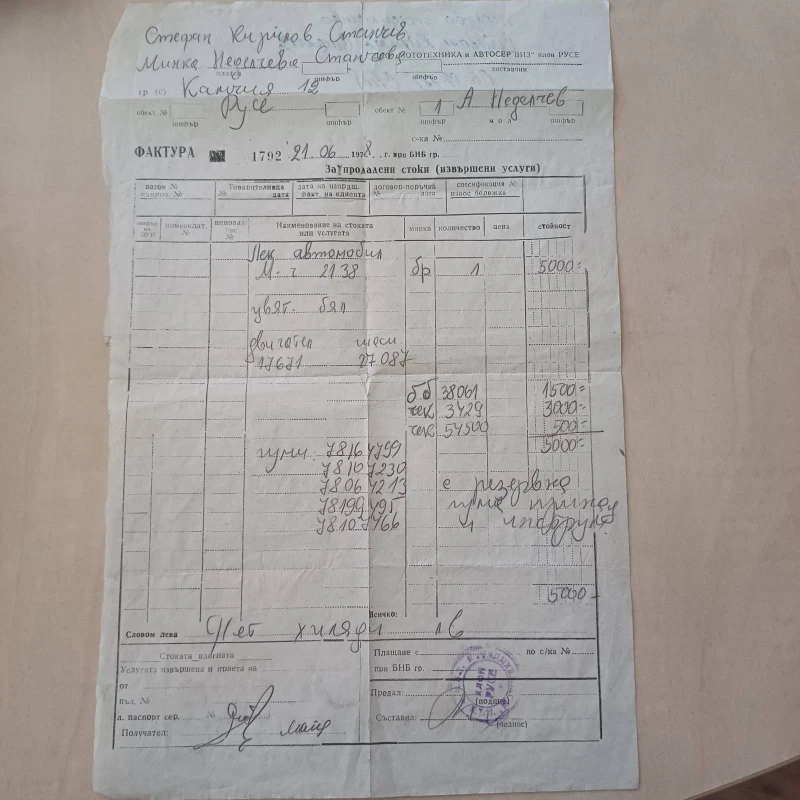 Стефан Кирилов Станчев
Минка Неделчева Станчева МОТОТЕХНИКА и АВТОСЕР ВИЗ" клон РУСЕ
платец шифър шифър доставчик
гр (с) Капчия 12
обект № Русе обект № 1 А Неделчев
шифър шифър шифър м о л
с-ка №
ФАКТУРА № 1792 21.06 1978. г. при БНБ гр.
За продадени стоки (извършени услуги)
вагон № Товарителница № дата на изпращ. договор-поръчка № спецификация №
дата факт. на клиента дата износ бележка
шифър номенклат. № Наименование на стоката или услугата марка количество цена стойност
Лек автомобил
М-ч 2138 бр 1 5000=
цвят. бял
двигател шаси
17671 27087
бб 38061 1500=
чек 3429 3000=
чек 54500 500=
5000=
гуми 78164799
78107230
78064213 с резервна
78199495 гума
78107466
5000=
Всичко:
Словом лева Пет хиляди лв
Стоката изпратена Плащане с по с/ка №
Услугата извършена и приета на при БНБ гр.
от Предал:
пъл. № (подпис)
л. паспорт сер. № Съставил:
Получател: (подпис)
КЛОН РУСЕ